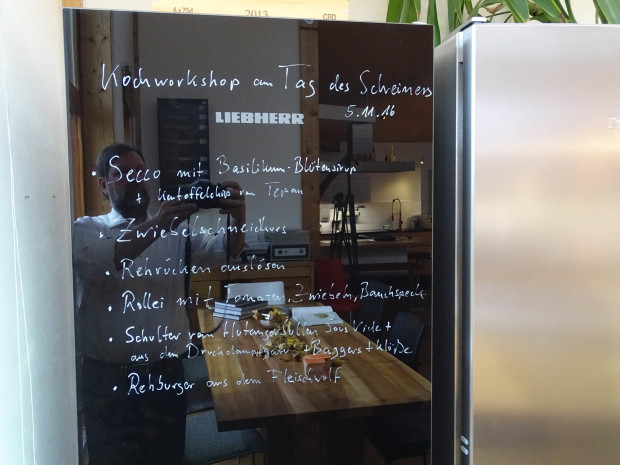 6x75d 2013 CBD
Kochworkshop am Tag des Schreiners
5.11.16
LIEBHERR
• Secco mit Basilikum-Blütensirup
+ Kartoffelchips vom Tepan
• Zwiebelschneidkurs
• Rehrücken auslösen
• Rollei mit Tomaten, Zwiebeln, Bauchspeck
• Schulter vom Sous Vide +
aus dem + Baggers + Klöße
• Rehburger aus dem Fleischwolf